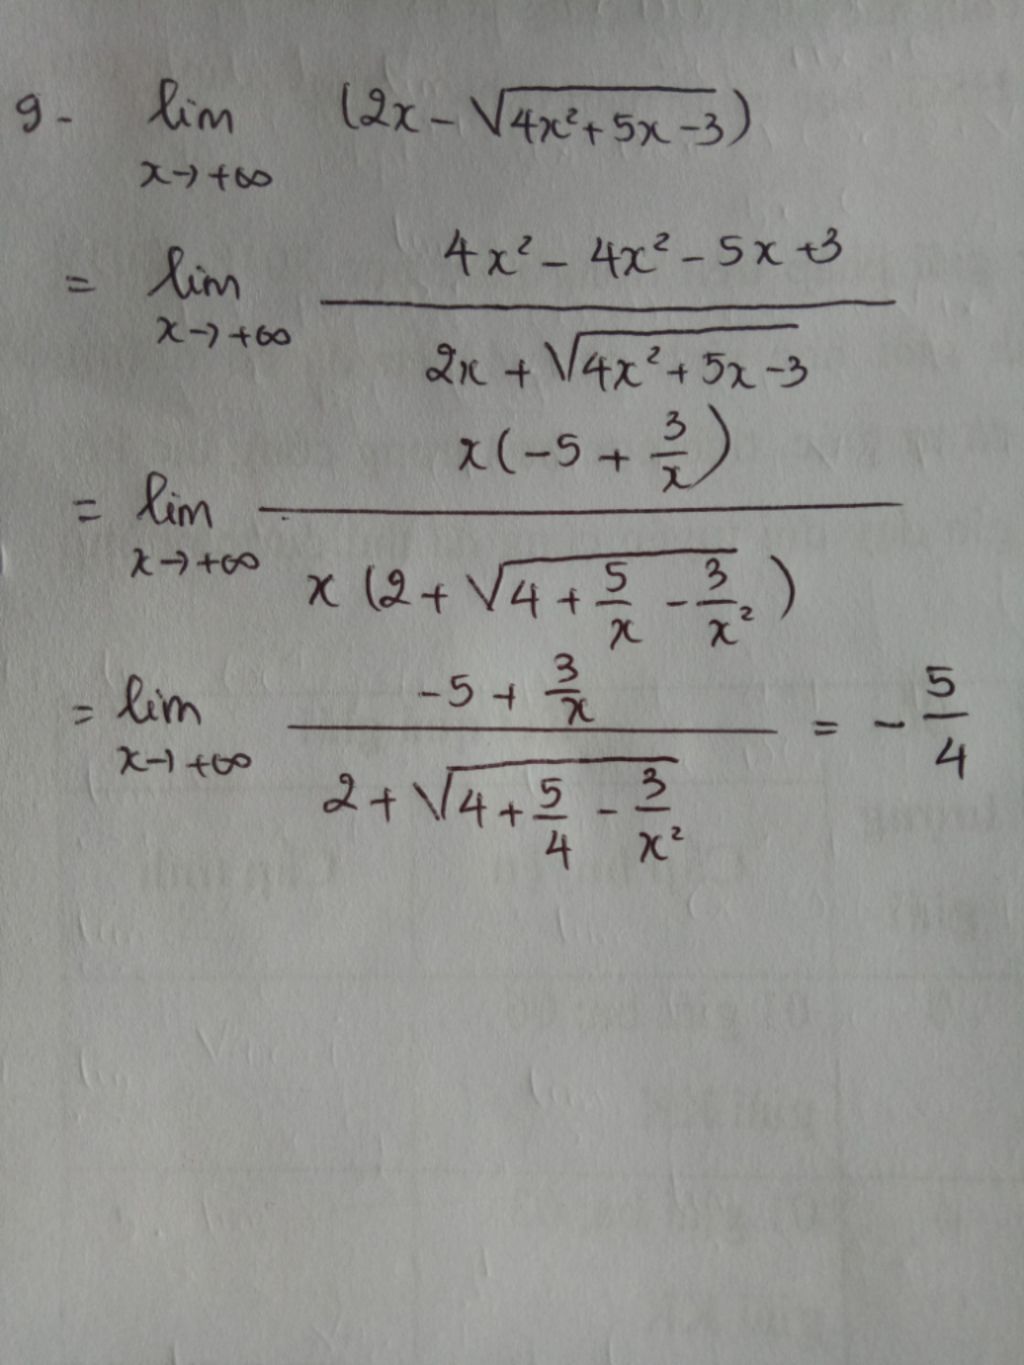 9- lim (2x - √(4x² + 5x - 3))
x→+∞
= lim (4x² - 4x² - 5x + 3) / (2x + √(4x² + 5x - 3))
x→+∞
= lim x(-5 + 3/x) / x(2 + √(4 + 5/x - 3/x²))
x→+∞
= lim (-5 + 3/x) / (2 + √(4 + 5/4 - 3/x²)) = - 5/4
x→+∞